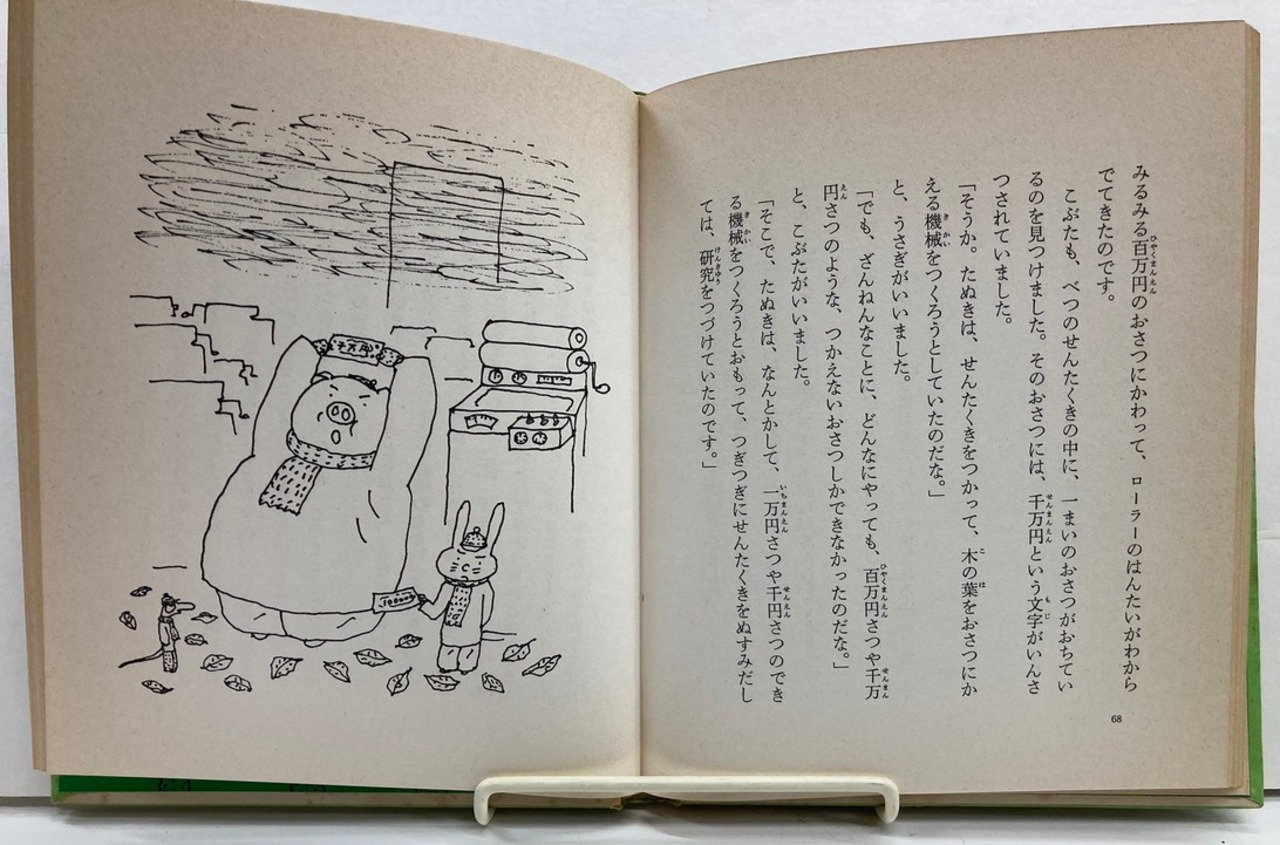 みるみる百万円のおさつにかわって、ローラーのはんたいがわから
でてきたのです。
こぶたも、べつのせんたくきの中に、一まいのおさつがおちてい
るのを見つけました。そのおさつには、千万円という文字がいんさ
つされていました。
「そうか。たぬきは、せんたくきをつかって、木の葉をおさつにか
える機械をつくろうとしていたのだな。」
と、うさぎがいいました。
「でも、ざんねんなことに、どんなにやっても、百万円さつや千万
円さつのような、つかえないおさつしかできなかったのだな。」
と、こぶたがいいました。
「そこで、たぬきは、なんとかして、一万円さつや千円さつのでき
る機械をつくろうとおもって、つぎつぎにせんたくきをぬすみだし
ては、研究をつづけていたのです。」
68
千万円